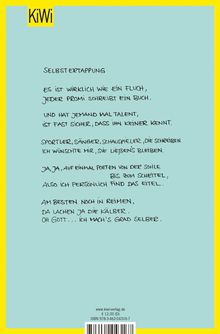 KiWi
SELBSTERTAPPUNG
ES IST WIRKLICH WIE EIN FLUCH,
JEDER PROMI SCHREIBT EIN BUCH.
UND HAT JEMAND MAL TALENT,
IST FAST SICHER, DASS IHN KEINER KENNT.
SPORTLER, SÄNGER, SCHAUSPIELER, DIE SCHREIBEN
ICH WÜNSCHTE MIR, DIE LIEßEN'S BLEIBEN.
JA, JA, AUF EINMAL POETEN VON DER SOHLE
BIS ZUM SCHEITEL,
ALSO ICH PERSÖNLICH FIND DAS EITEL.
AM BESTEN NOCH IN REIMEN,
DA LACHEN JA DIE KÄLBER.
OH GOTT... ICH MACH'S GRAD SELBER.
www.kiwi-verlag.de